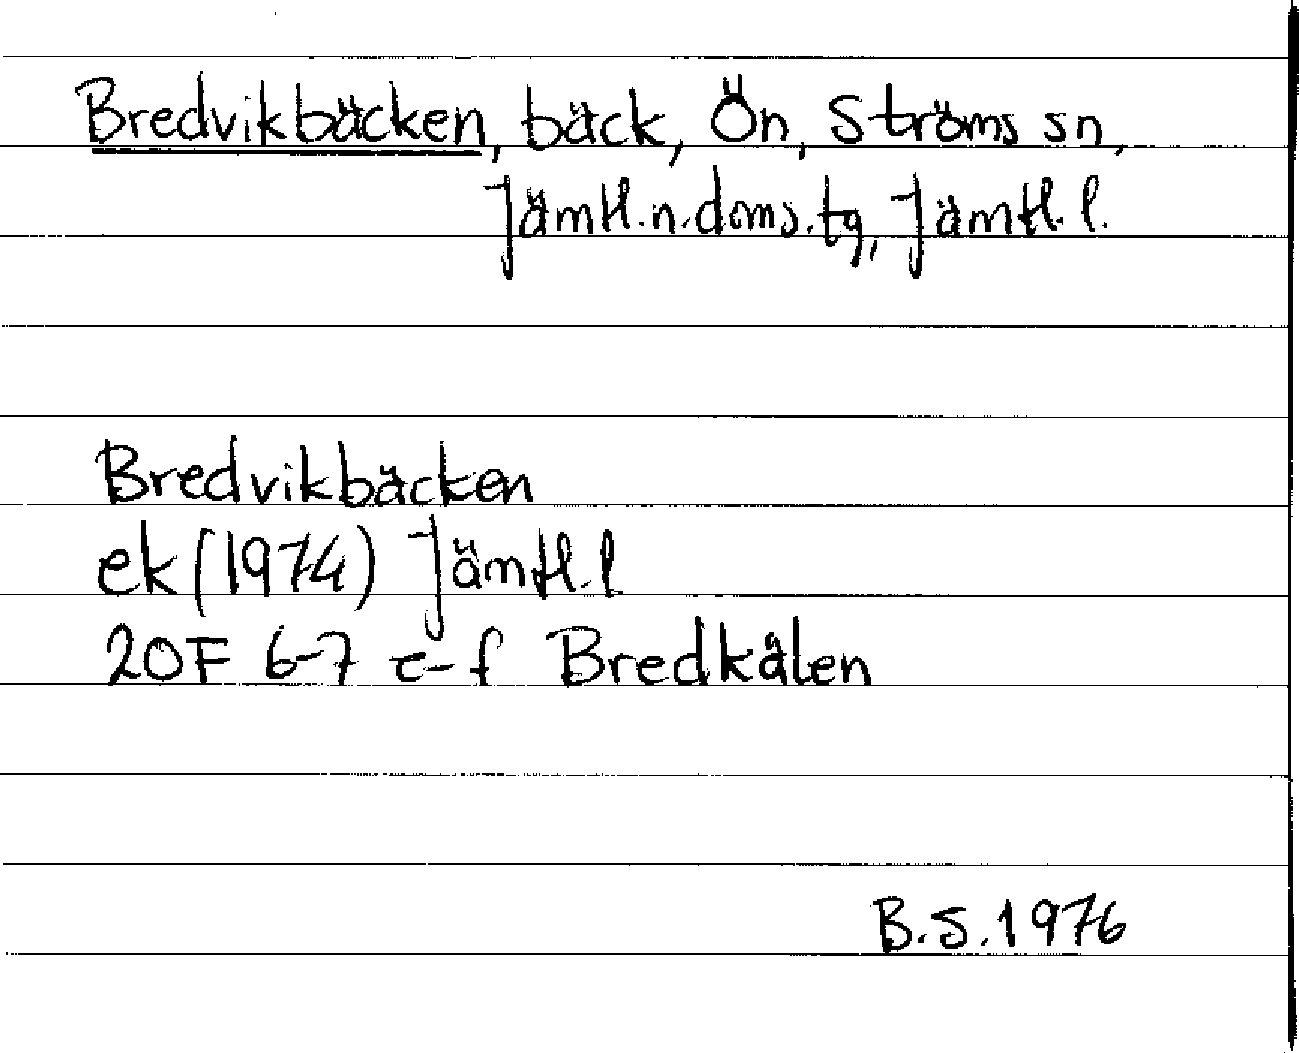 Bredvikbäcken, bäck, Ön, Ströms sn,
Jämtl.n.doms.tg, Jämtl.l.
Bredvikbäcken
ek (1974) Jämtl.l
20F 6-7 e-f Bredkälen
B.S. 1976